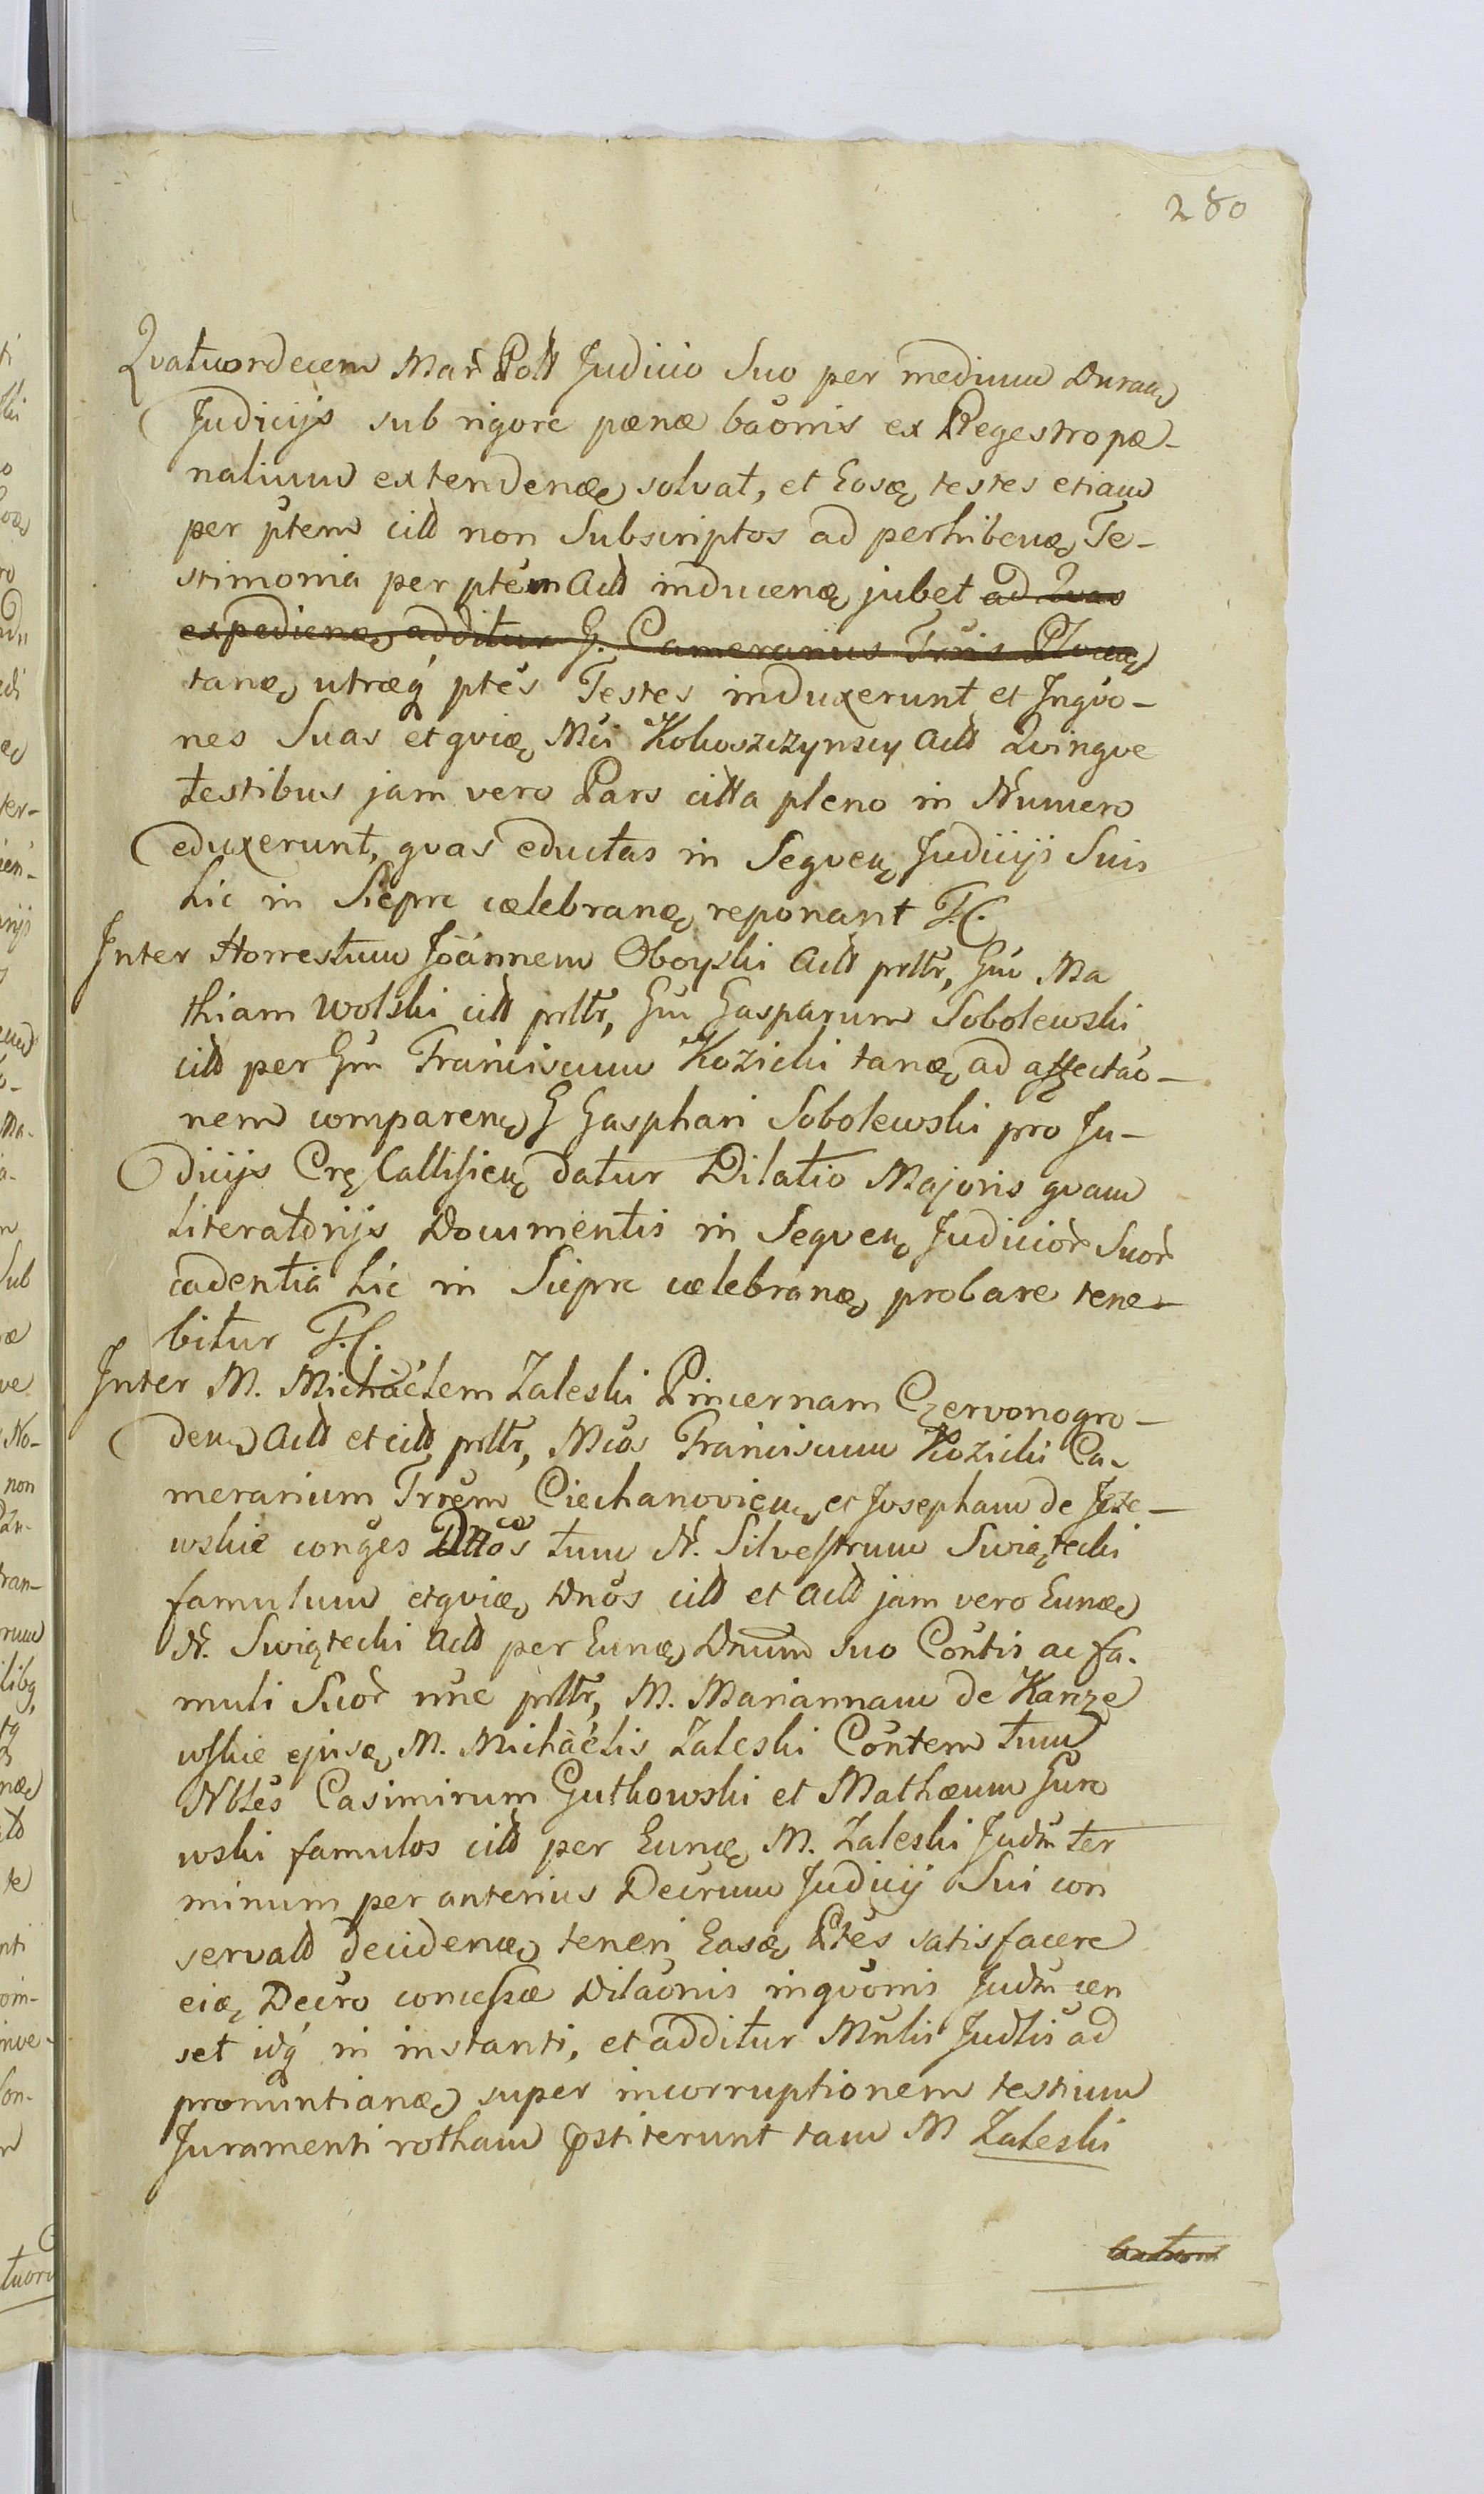 280
Qvatuordecem Mar Poll Judicio Suo per medium Duran
Judicijs sub rigore pænæ baonis ex Regestro pæ-
nalium extendenæ solvat, et Eosæ testes etiam
per ptem citt non Subscriptos ad perhibenæ Te-
stimonia per ptem Actt inducenæ jubet ad Quas
expedienæ additur G. Camerarius Trris Plocen
tanæ utræq ptes Testes induxerunt et Inqvo-
nes Suas etqviæ Mci Kokoszczynscy Actt Qvinqve
testibus jam vero Pars citta pleno in Numero
eduxerunt, qvas eductas in Seqven Judicijs Suis
hic in Siepre cælebranæ reponant T.C.
Inter Honestum Joannem Oboyski Actt prltr, Gm Ma
thiam Wolski citt prltr, Gm Gasparum Sobolewski
citt per Gm Franciscum Kozicki tanæ ad affectao-
nem comparen G Gasphari Sobolewski pro Ju-
dicijs Cræ Callisien datur Dilatio Majoris qvam
Literatorijs Documentis in Seqven Judicior Suor
cadentia hic in Siepre cælebranæ probare tene-
bitur T.C.
Inter M. Michaelem Zaleski Pincernam Czervonogro-
den Actt et citt prltr, Mcos Franciscum Kozicki Ca-
merarium Trrem Ciechanovien et Josepham de Jeze-
wskie conges tum N. Silvestrum Swiątecki
famulum etqviæ Dnos citt et Actt jam vero Eunæ
N. Swiątecki Actt per Eunæ Dnum suo Contis ac fa-
muli Suor nne prltr, M. Mariannam de Kanze
wskie ejusæ M. Michaelis Zaleski Contem tum
Nbles Casimirum Gutkowski et Mathæum Guro
wski famulos citt per Eunæ M. Zaleski Judm ter
minum per anterius Decrum Judicij Sui con
servatt decidenæ teneri Easæ Ptes satisfacere
eiæ Decro concessæ Dilaonis inqvonis Judm cen
set idq in instanti, et additur Mnlis Judlis ad
pronuntianæ super incorruptionem testium
Juramenti rotham pstiterunt tam M Zaleski